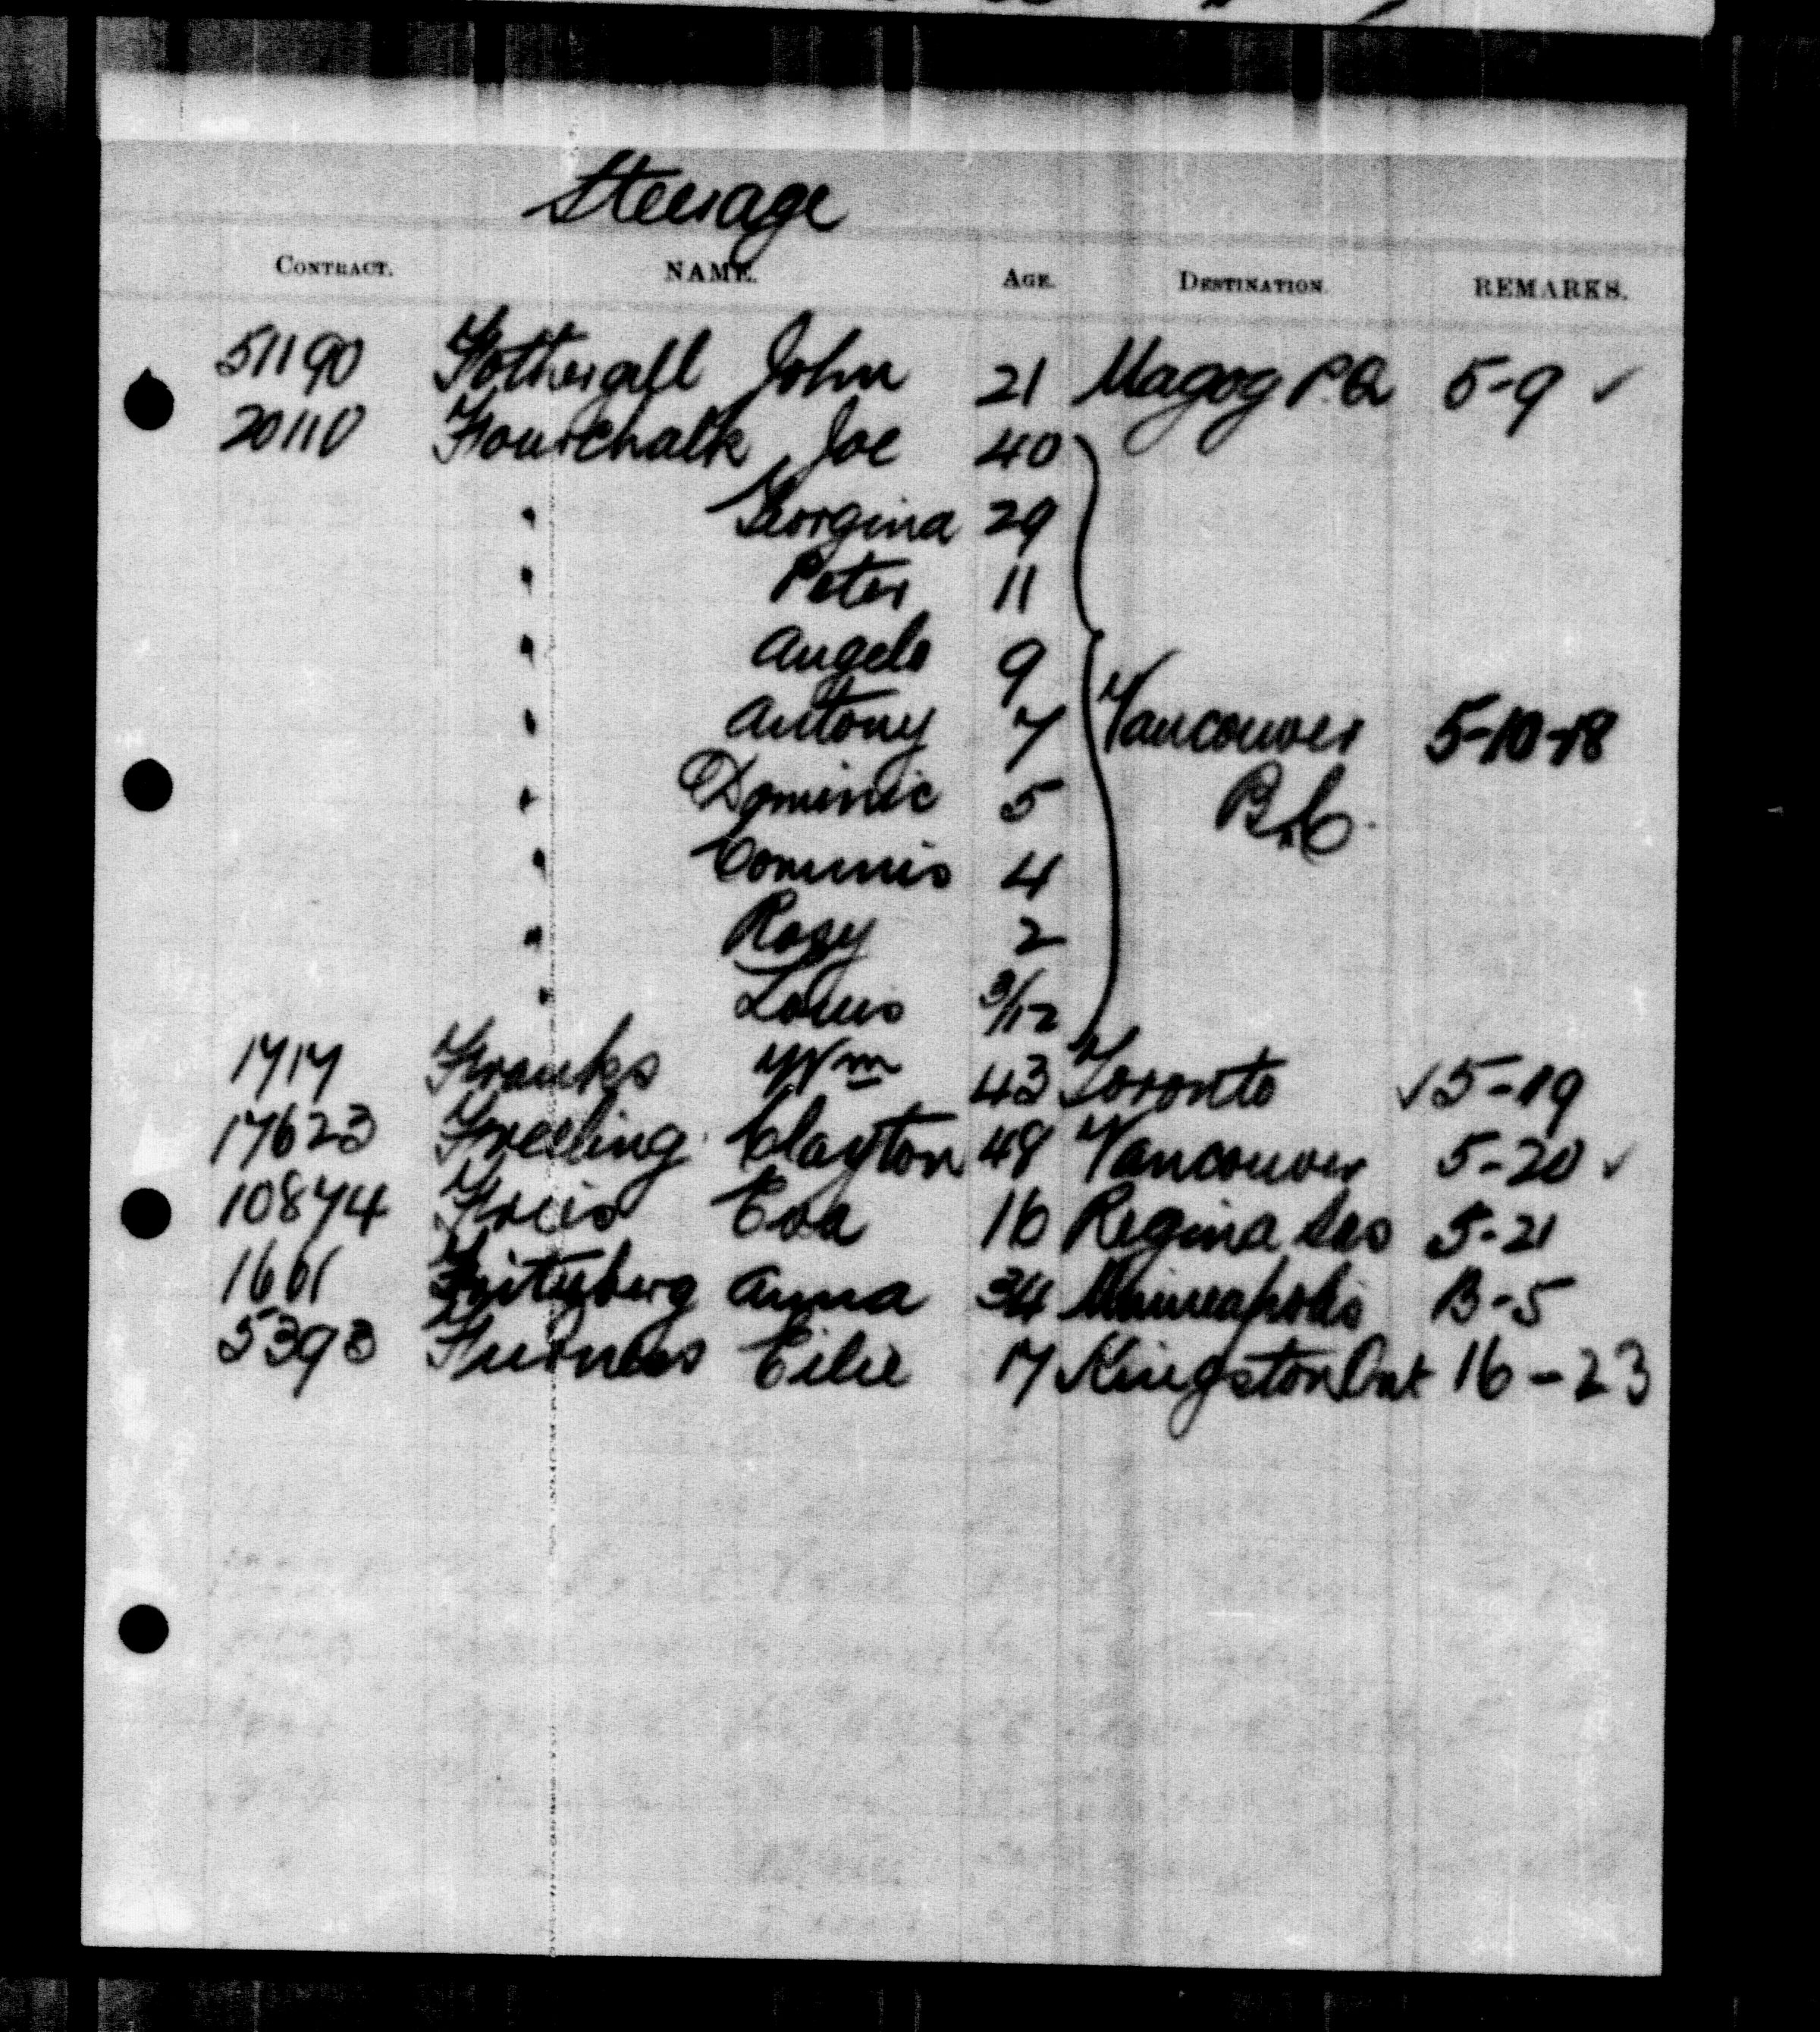 Steerage
CONTRACT. NAME. AGE. DESTINATION. REMARKS.
51190 Fothergill John 21 Magog P.Q 5-9 ✓
20110 Fourchalk Joe 40
" Georgina 29
" Peter 11
" Angelo 9
" Antony 7 Vancouver 5-10-18
" Dominic 5 B.C.
" 4
" Rosy 2
" Louis 3/12
1717 Franks Wm 43 Toronto ✓ 5-19
17623 Freeling Clayton 48 Vancouver 5-20 ✓
10874 Freis Eva 16 Regina Sas 5-21
1661 Anna 34 Minneapolis B-5
5393 Furness Cilie 17 Kingston Ont 16-23